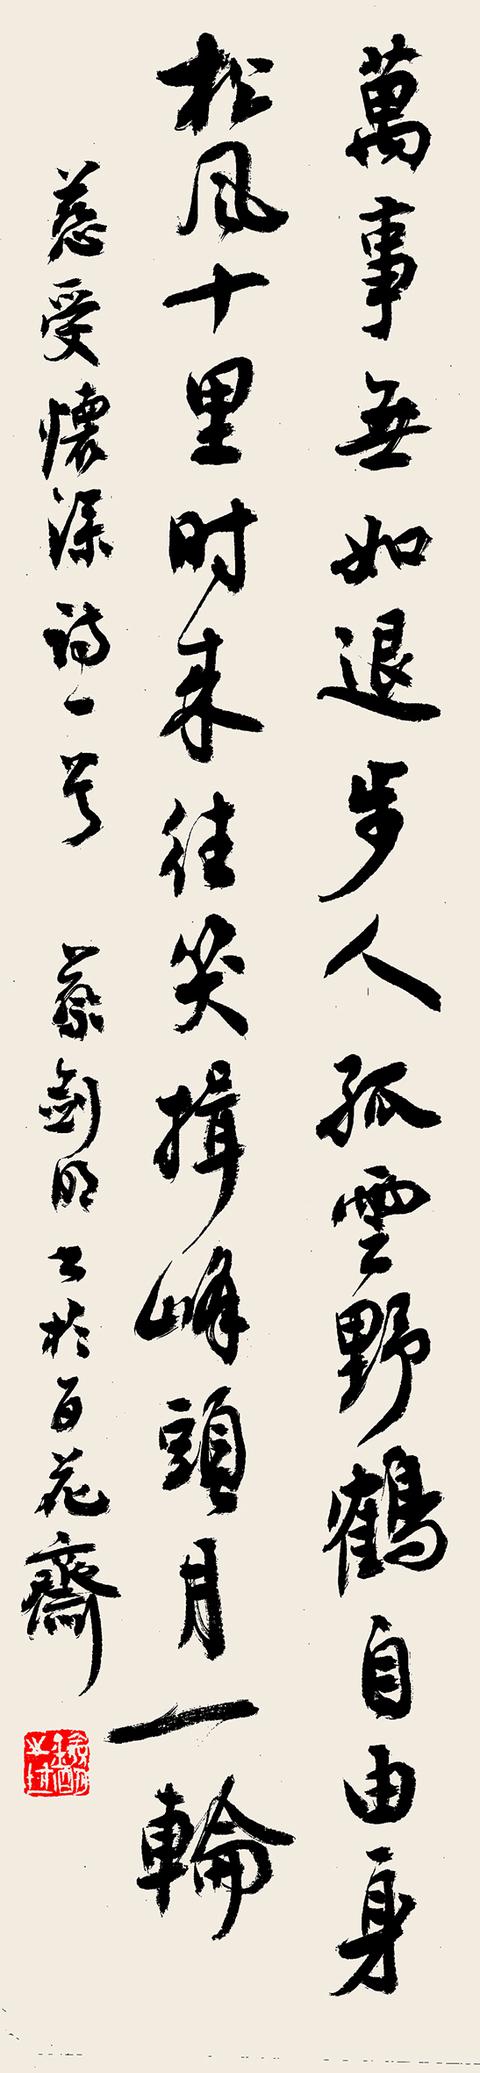 萬事無如退步人孤雲野鶴自由身
松風十里时来往笑揖峰頭月一輪
慈受懷深詩一首 蔡劍明书於百花齋